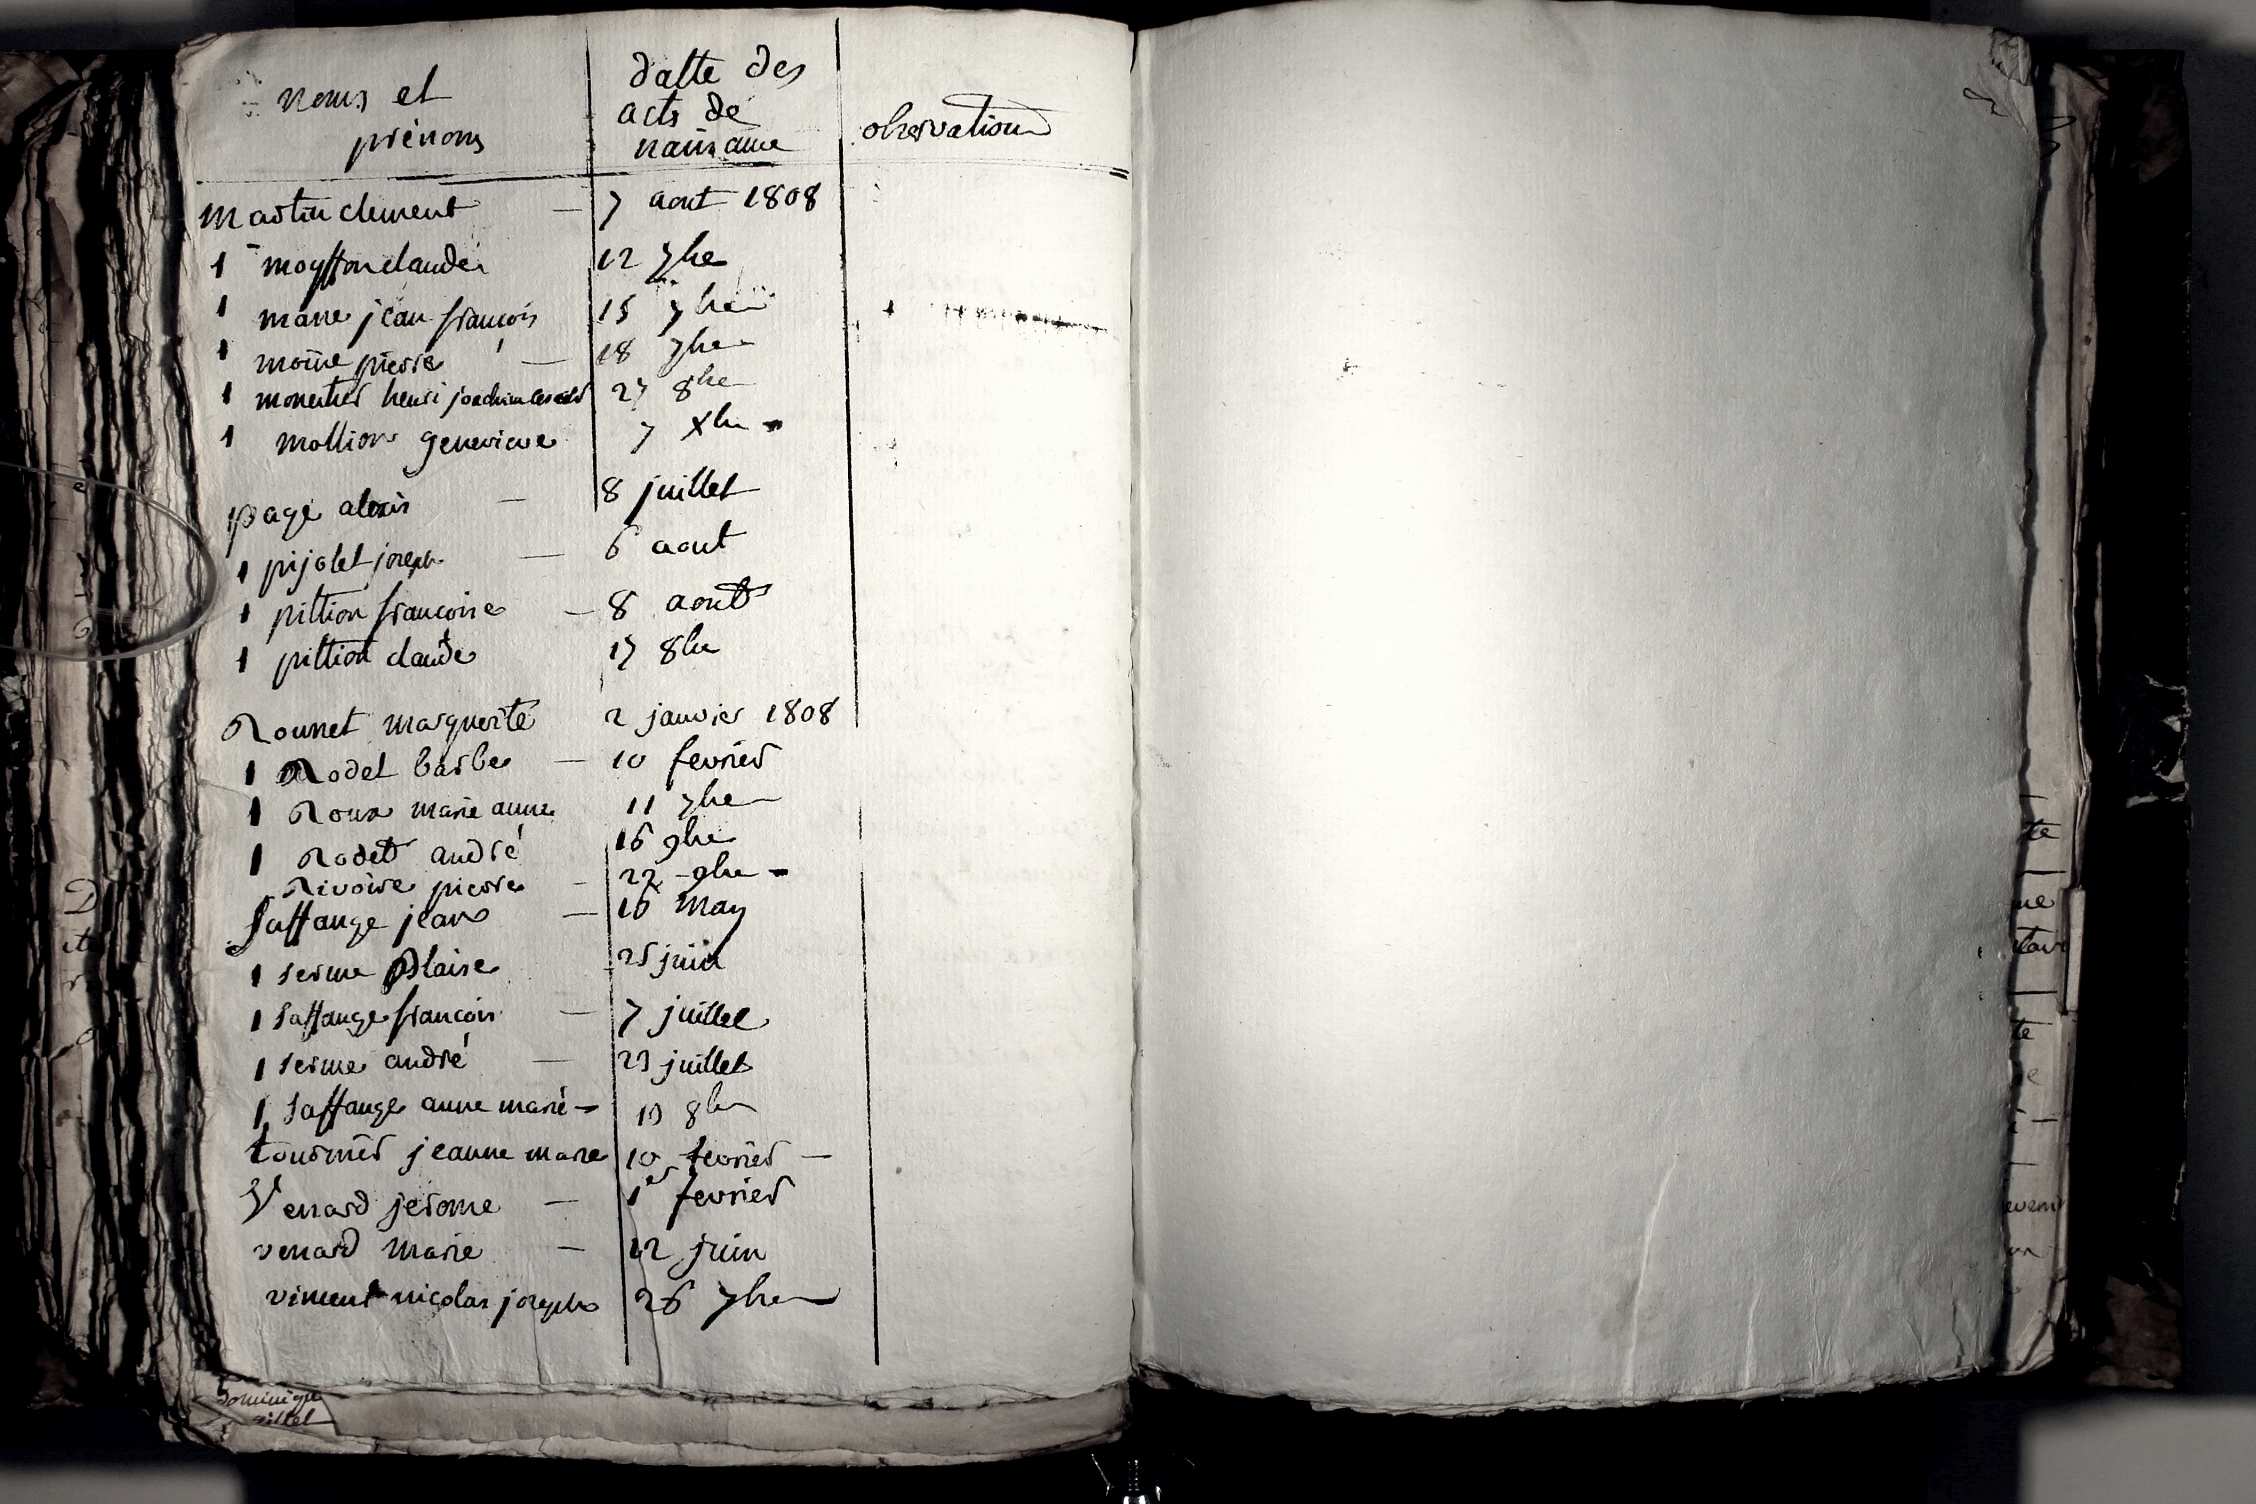 noms et prénoms
datte des acts de naissance
observation
Martin clement — 7 aout 1808
1 moyffon claude 12 7bre
1 marie jean françois 15 7bre
1 moine pierre — 18 7bre
1 monertier henri joachim 27 8bre
1 mollion genevieve 7 Xbre
page alexis — 8 juillet
1 pijolet joseph — 6 aout
1 pittion francoise — 8 aout
1 pittion claude 17 8bre
Rounet marguerite 2 janvier 1808
1 Rodet barbe — 10 fevrier
1 Roux marie anne 11 7bre
1 Rodet andré 16 9bre
Rivoire pierre — 22 9bre
Saffange jean — 16 may
1 serme Blaise 25 juin
1 Saffange françois — 7 juillet
1 serme andré — 23 juillet
1 Saffange anne marie — 19 8bre
tournier jeanne marie 10 fevrier —
Venard jerome — 1er fevrier
venard marie — 12 juin
viment nicolas joseph 26 7bre
Dominique